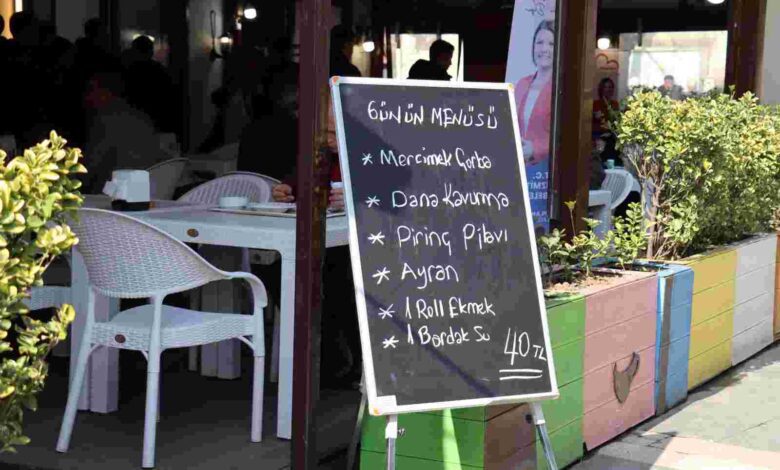 GÜNÜN MENÜSÜ
* Mercimek Çorba
* Dana Kavurma
* Piring Pilavı
* Ayran
* 1 Roll Ekmek
* 1 Bardak Su
40 TL
T.C.